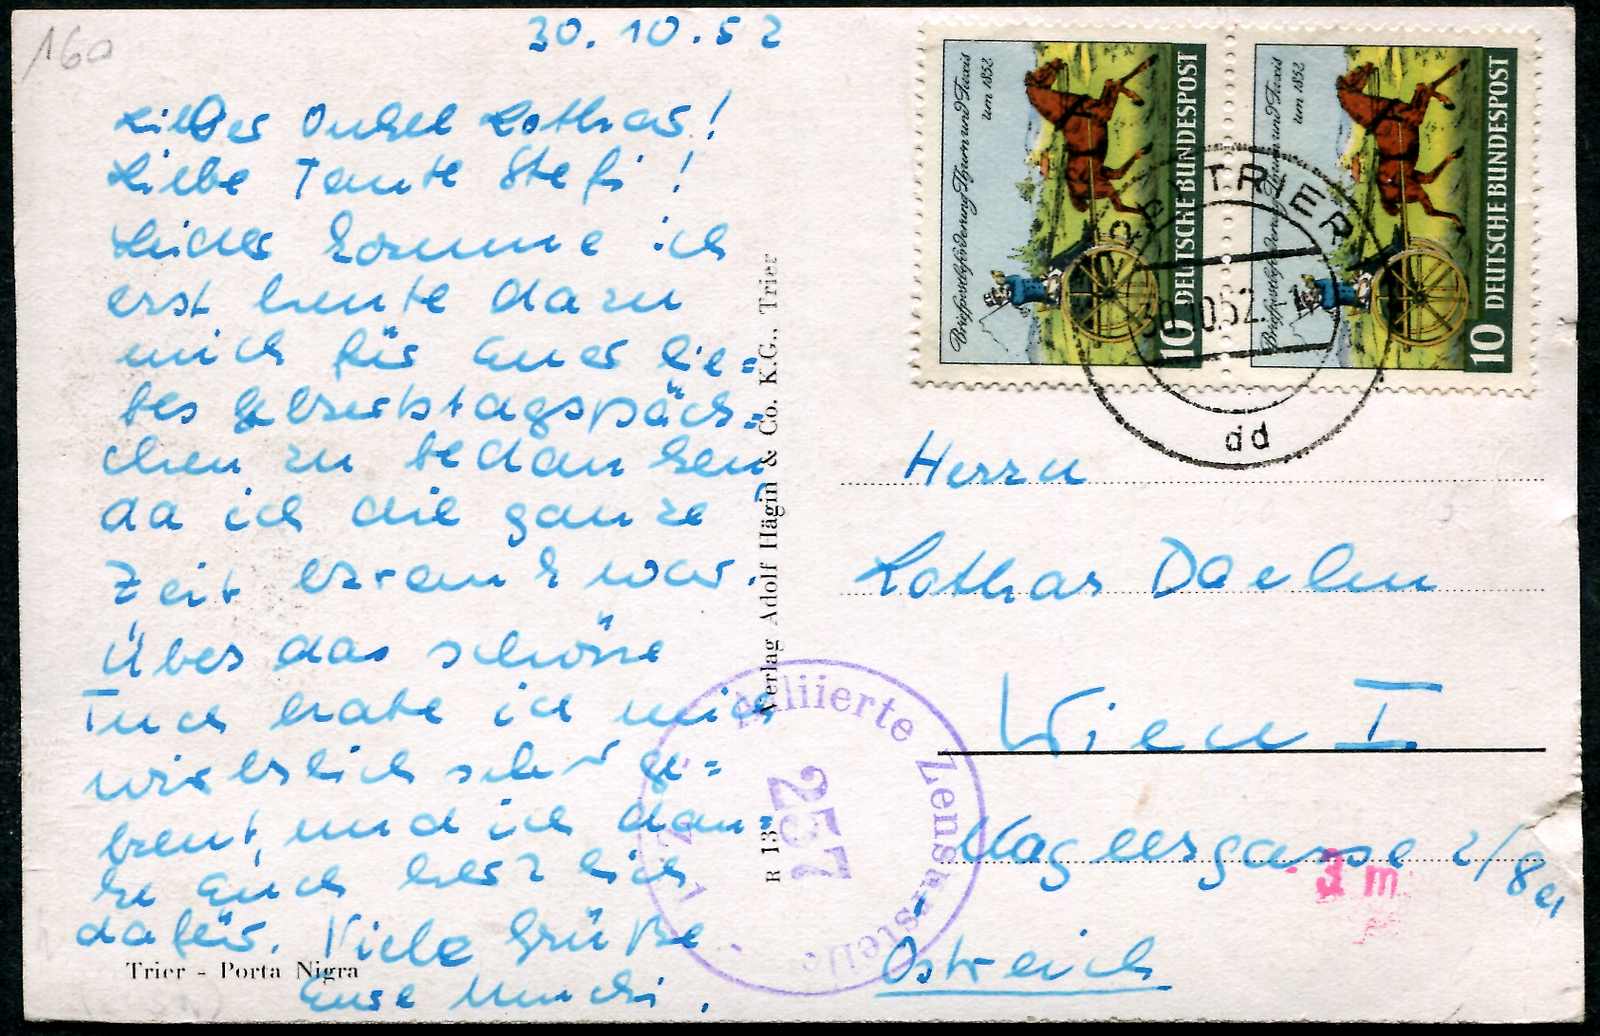 16a
30.10.52
Lieber Onkel Lothar!
Liebe Tante Stefi!
Leider komme ich
erst heute dazu
mich für Euer lie=
bes Geburtstagspäck=
chen zu bedanken
da ich die ganze
Zeit krank war.
Über das schöne
Tuch habe ich mich
wirklich sehr ge=
freut, und ich dan=
ke Euch herzlich
dafür. Viele Grüße
Eure Mucki.
Trier - Porta Nigra
R 13
Verlag Adolf Hägin & Co. K.G., Trier
Briefpostbeförderung Thurn und Taxis
um 1852
10 DEUTSCHE BUNDESPOST
Briefpostbeförderung Thurn und Taxis
um 1852
10 DEUTSCHE BUNDESPOST
TRIER
30.10.52
dd
Herrn
Lothar Daelen
Wien I
2/8a
Östreich
Alliierte Zensurstelle
257
3 m